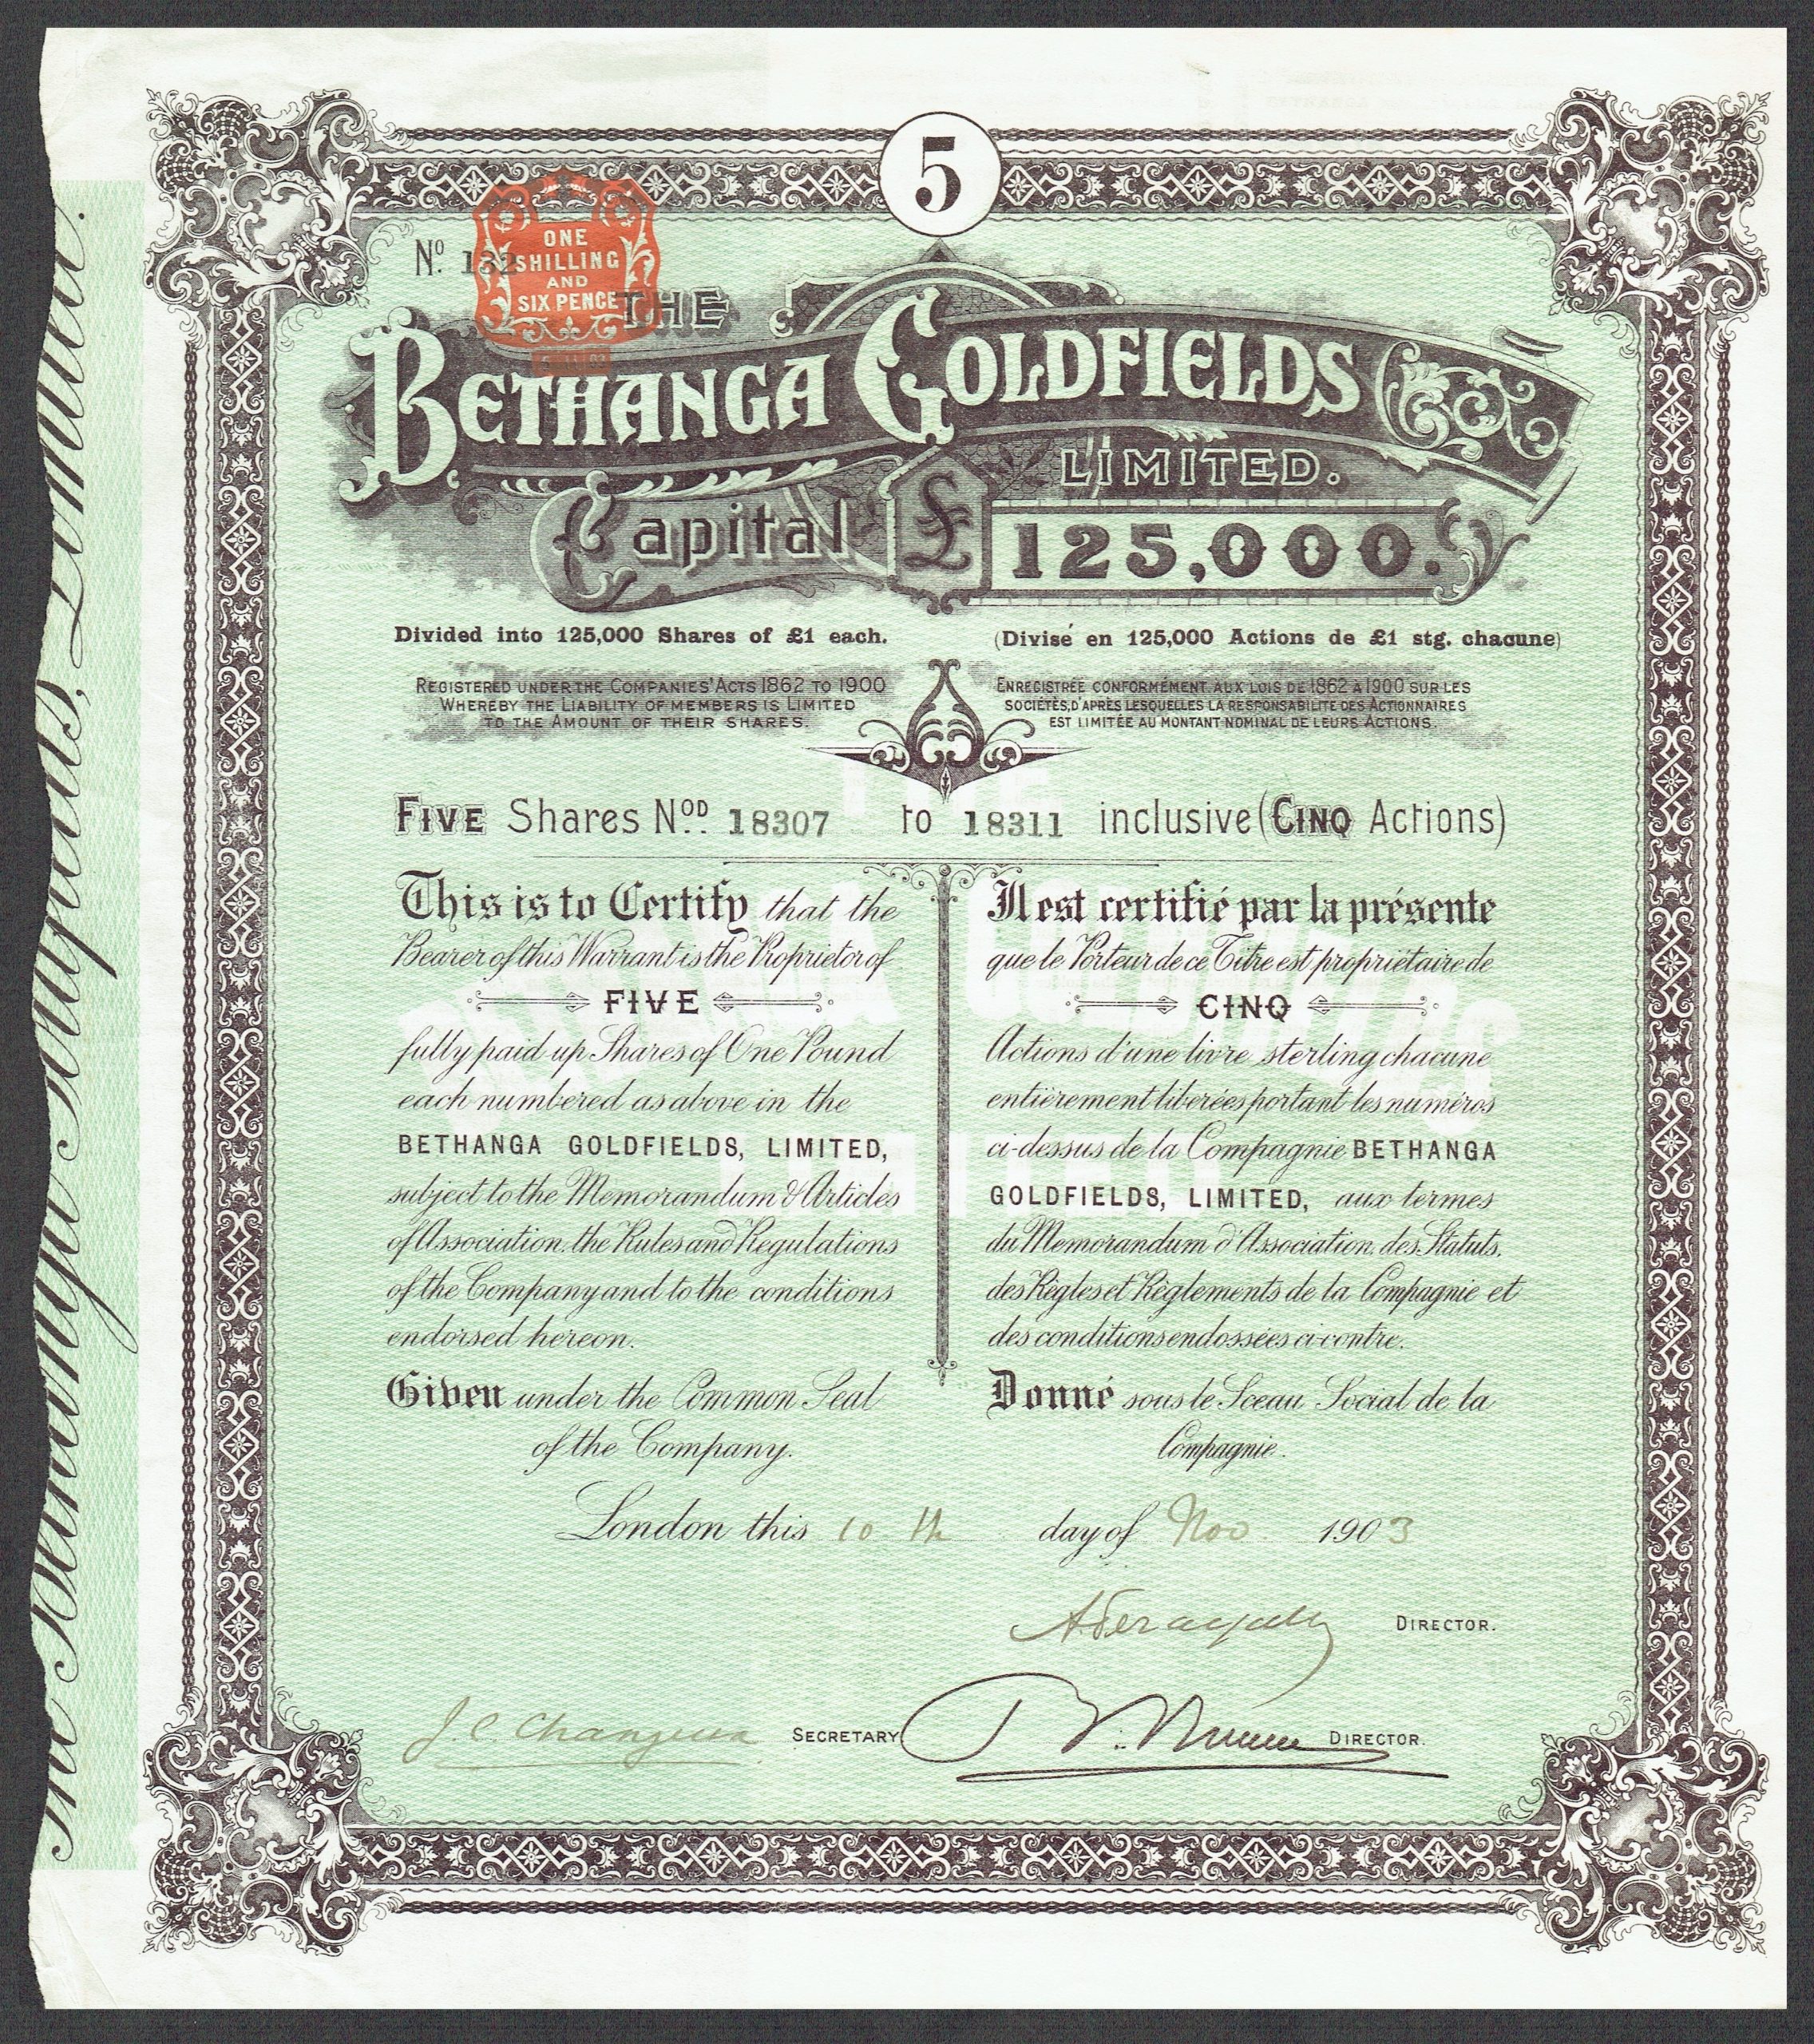 5
No. 132
ONE
SHILLING
AND
SIX PENCE
THE
BETHANGA GOLDFIELDS
LIMITED.
Capital £125,000.
Divided into 125,000 Shares of £1 each.
(Divisé en 125,000 Actions de £1 stg. chacune)
REGISTERED UNDER THE COMPANIES' ACTS 1862 TO 1900
WHEREBY THE LIABILITY OF MEMBERS IS LIMITED
TO THE AMOUNT OF THEIR SHARES.
ENREGISTRÉE CONFORMÉMENT AUX LOIS DE 1862 A 1900 SUR LES
SOCIÉTÉS, D'APRÈS LESQUELLES LA RESPONSABILITE DES ACTIONNAIRES
EST LIMITÉE AU MONTANT NOMINAL DE LEURS ACTIONS.
FIVE Shares Nod. 18307 to 18311 inclusive (CINQ Actions)
This is to Certify that the
Bearer of this Warrant is the Proprietor of
FIVE
fully paid up Shares of One Pound
each numbered as above in the
BETHANGA GOLDFIELDS, LIMITED,
subject to the Memorandum & Articles
of Association, the Rules and Regulations
of the Company and to the conditions
endorsed hereon.
Given under the Common Seal
of the Company.
Il est certifié par la présente
que le Porteur de ce Titre est propriétaire de
CINQ
Actions d'une livre sterling chacune
entièrement libérées portant les numéros
ci-dessus de la Compagnie BETHANGA
GOLDFIELDS, LIMITED, aux termes
du Memorandum d'Association, des Statuts,
des Règles et Règlements de la Compagnie et
des conditions endossées ci-contre.
Donné sous le Sceau Social de la
Compagnie.
London this 10th day of Nov 1903
DIRECTOR.
J. C. SECRETARY
DIRECTOR.
The Bethanga Goldfields, Limited.
THE
BETHANGA GOLDFIELDS
LIMITED